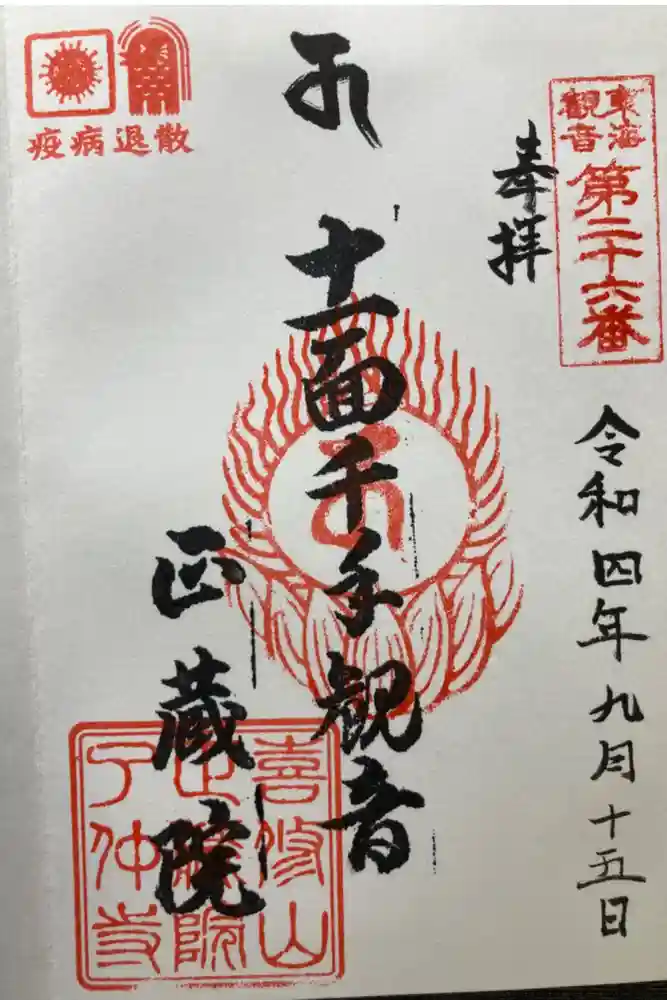 東海
観音
第二十六番
奉拝
令和四年九月十五日
十一面千手観音
正蔵院
疫病退散
喜修山
正蔵院
了仲寺